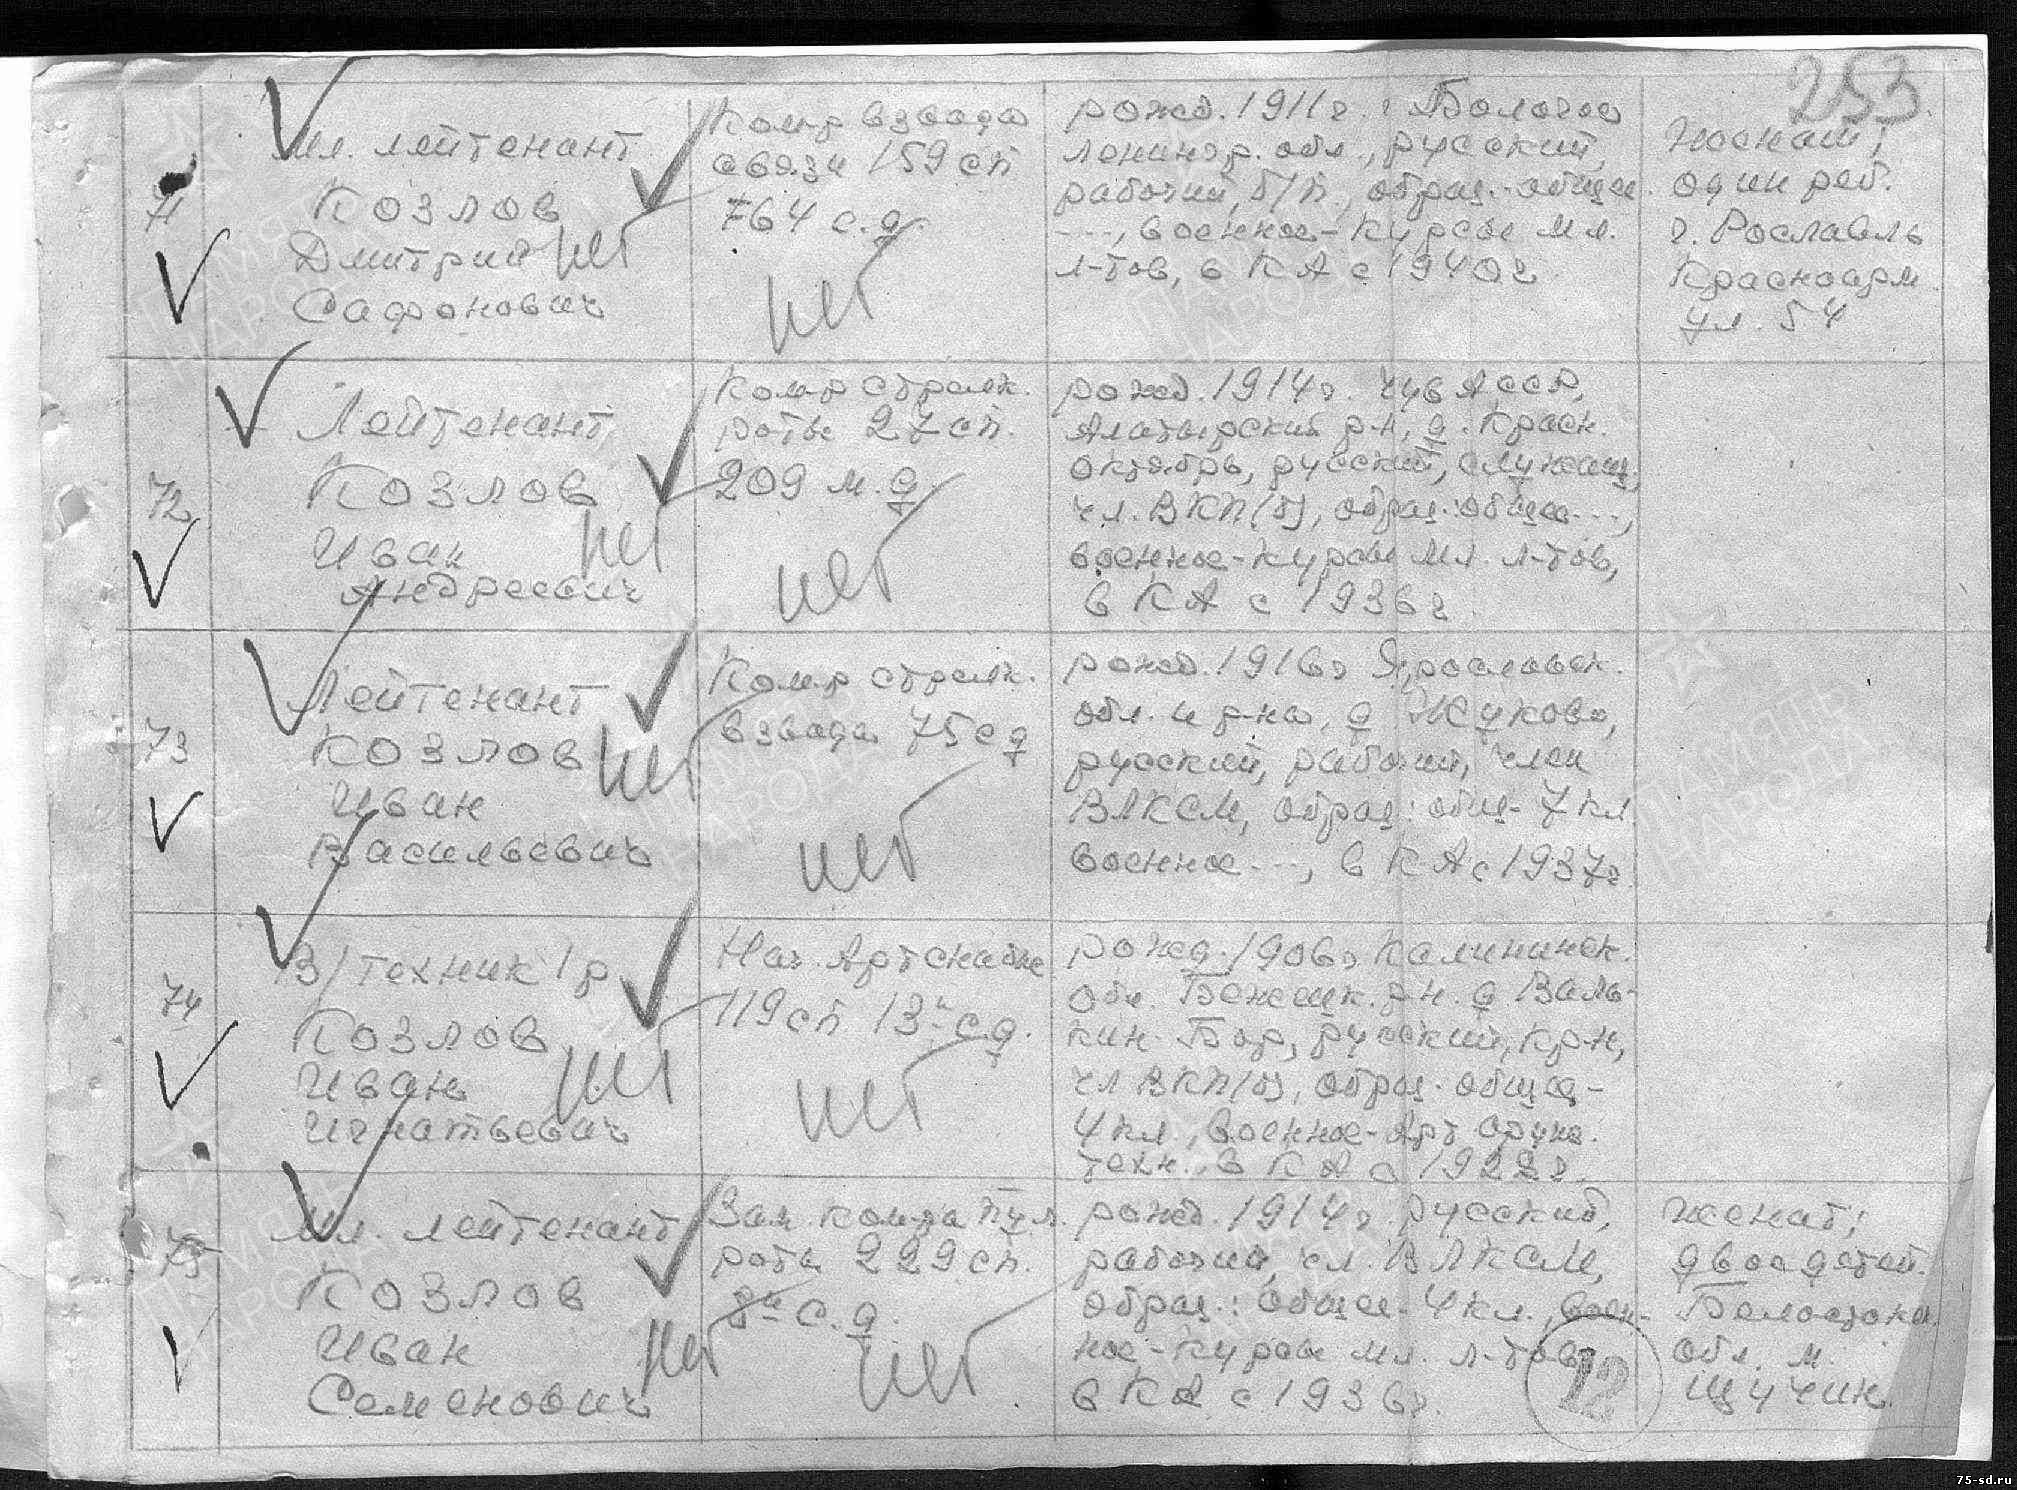 253
71
Мл. лейтенант
Козлов
Дмитрий
Сафонович
Ком-р взвода
связи 159 сп
764 с.д.
рожд. 1911 г. г. Бологое
Ленингр. обл., русский,
рабочий, б/п., образ.- общее
---, военное-курсы мл.
л-тов, в КА с 1940 г
Женат;
один реб.
г. Рославль
Красноарм.
ул. 54
72
Лейтенант
Козлов
Иван
Андреевич
Ком-р стрелк.
роты 27 сп.
209 м.д.
рожд. 1914 г. Чув АССР,
Алатырский р-н, д. Красн.
октябрь, русский, служащ.,
чл. ВКП(б), образ.: общее ---,
военное-курсы мл. л-тов,
в КА с 1936 г.
73
Лейтенант
Козлов
Иван
Васильевич
Ком-р стрелк.
взвода 75 сд
рожд. 1916 г Ярославск.
обл. и р-на, д Жуково,
русский, рабочий, член
ВЛКСМ, образ: общ- 7 кл
военное ---, в КА с 1937 г.
74
В/техник 1 р
Козлов
Иван
Игнатьевич
Нач. Артснабже
119 сп 13й с.д.
рожд. 1906 г Калининск.
обл. Бежецк. р-н. д
Бор, русский, кр-н,
чл ВКП(б), образ. общее-
4 кл., военное-Арт оруж.
техн., в КА с
75
Мл. лейтенант
Козлов
Иван
Семенович
Зам. ком-ра пул.
роты 229 сп.
8й с.д.
рожд. 1914 г. русский,
рабочий, чл. ВЛКСМ,
образ.: общее- 4 кл., воен-
ное-курсы мл. л-тов,
в КА с 1936 г.
женат;
двое детей.
Белостокск.
обл. м.
Щучин.
12
ПАМЯТЬ
НАРОДА
75-sd.ru